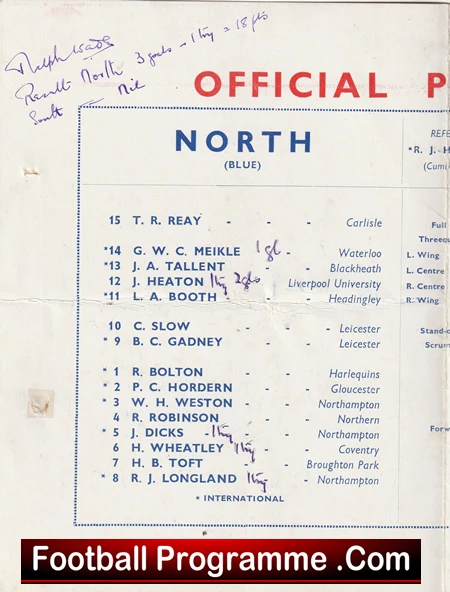 Ralph Wade
Result North 3 goals - 1 try = 18 pts
South - Nil
OFFICIAL P
NORTH
(BLUE)
REFE
*R. J. H
(Cumb
15 T. R. REAY - - - Carlisle
Full
Threequ
*14 G. W. C. MEIKLE 1 gl - Waterloo L. Wing
*13 J. A. TALLENT - - Blackheath L. Centre
12 J. HEATON 1 try 2 gls Liverpool University R. Centre
*11 L. A. BOOTH - - Headingley R. Wing
10 C. SLOW - - - Leicester Stand-o
* 9 B. C. GADNEY - - Leicester Scrum
* 1 R. BOLTON - - - Harlequins
* 2 P. C. HORDERN - - Gloucester
* 3 W. H. WESTON - - Northampton
4 R. ROBINSON - - - Northern
* 5 J. DICKS - 1 try - Northampton Forw
6 H. WHEATLEY 1 try - - Coventry
7 H. B. TOFT - - Broughton Park
* 8 R. J. LONGLAND 1 try - Northampton
* INTERNATIONAL
Football Programme .Com